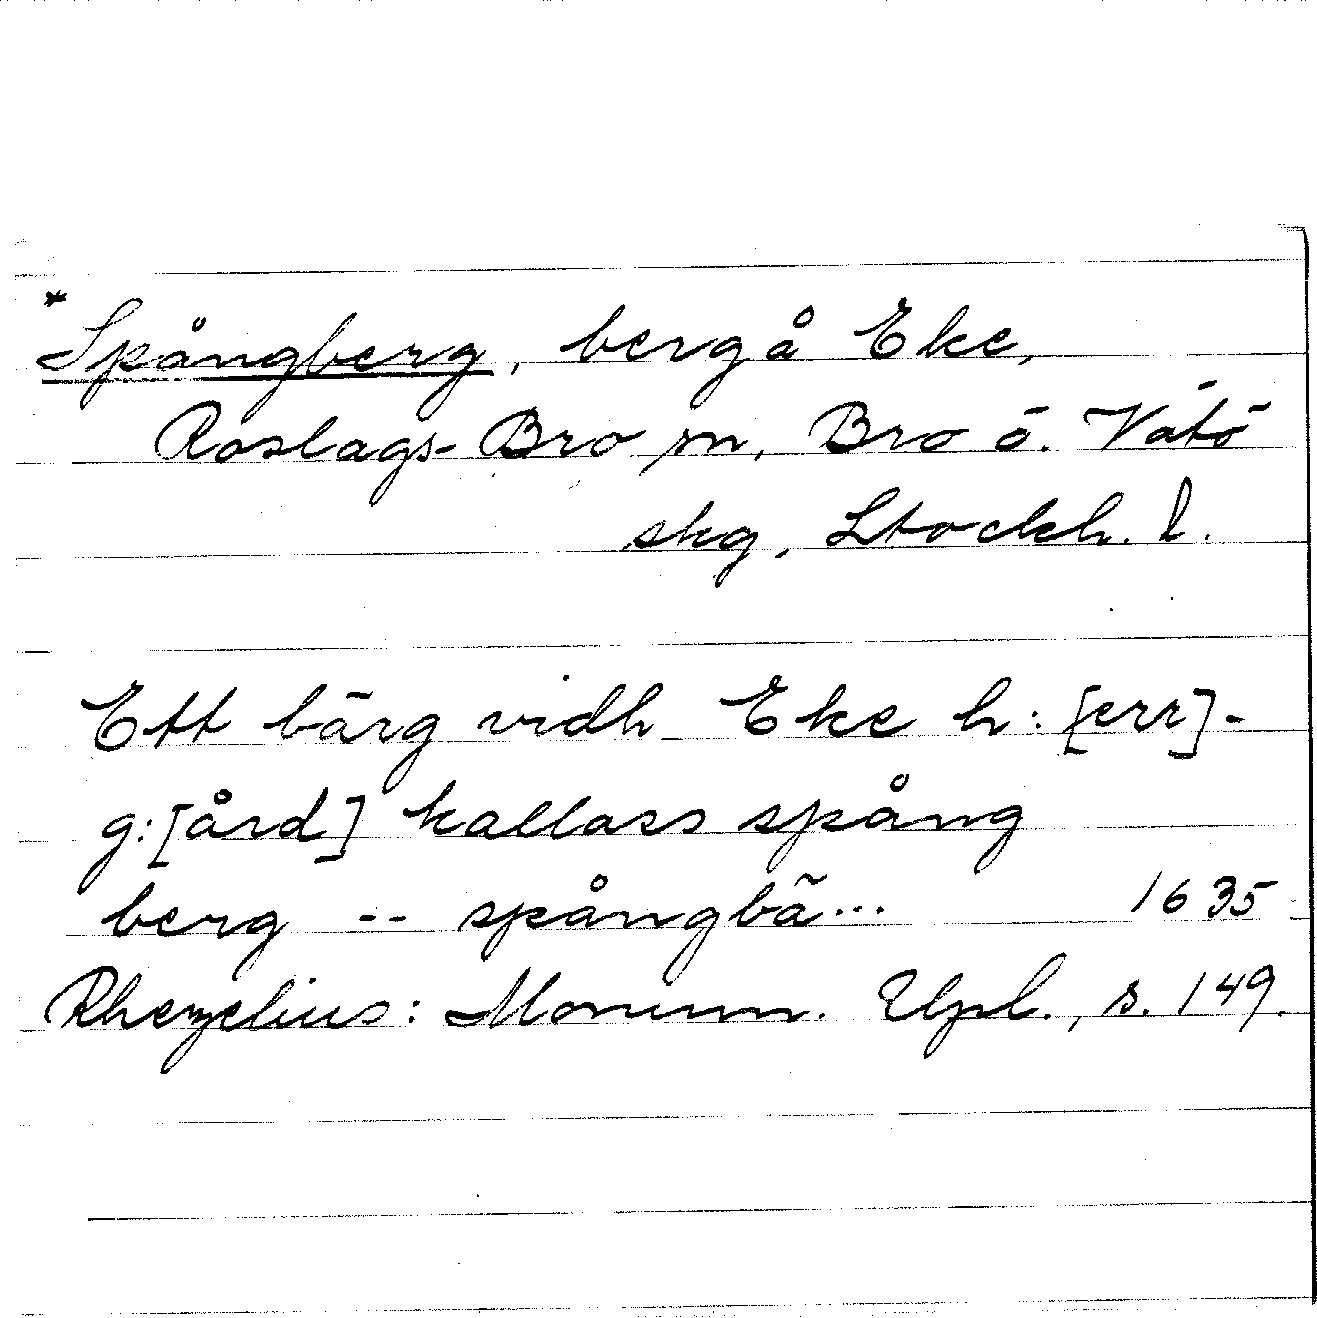 *Spångberg, berg å Eke,
Roslags-Bro sn, Bro o. Vätö
skg, Stockh. l.
Ett bärg vidh Eke h:[err]-
g:[ård] kallass spång
berg -- spångbä... 1635
Rhezelius: Monum. Upl., s. 149.